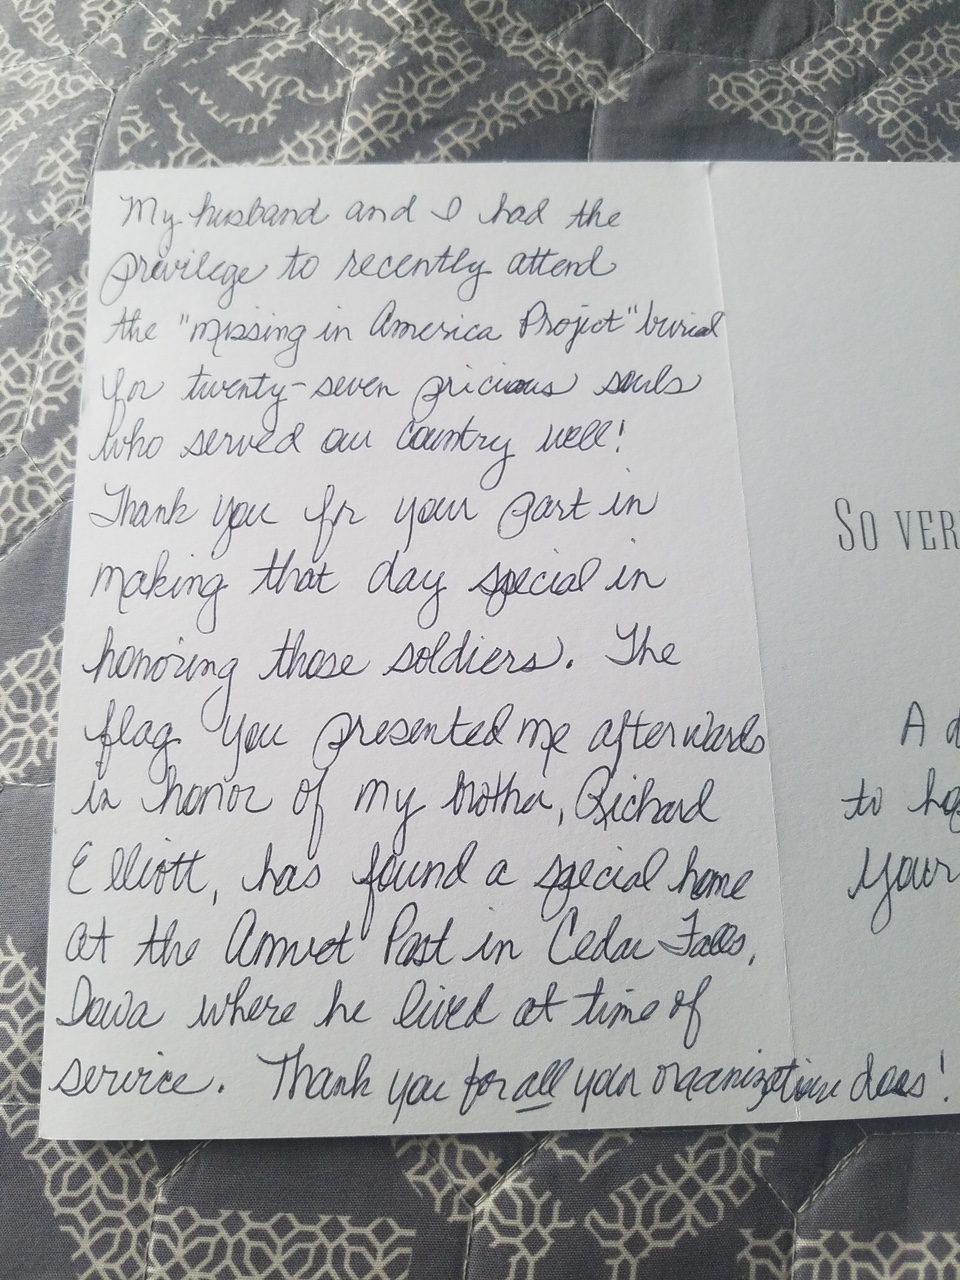 My husband and I had the
privilege to recently attend
the "missing in America Project" burial
for twenty-seven pricious souls
who served our country well!
Thank you for your part in
making that day special in
honoring those soldiers. The
flag you presented me afterwards
in honor of my brother, Richard
Elliott, has found a special home
at the Amvet Post in Cedar Falls,
Iowa where he lived at time of
service. Thank you for all your organization does!
So ver
A d
to ho
your